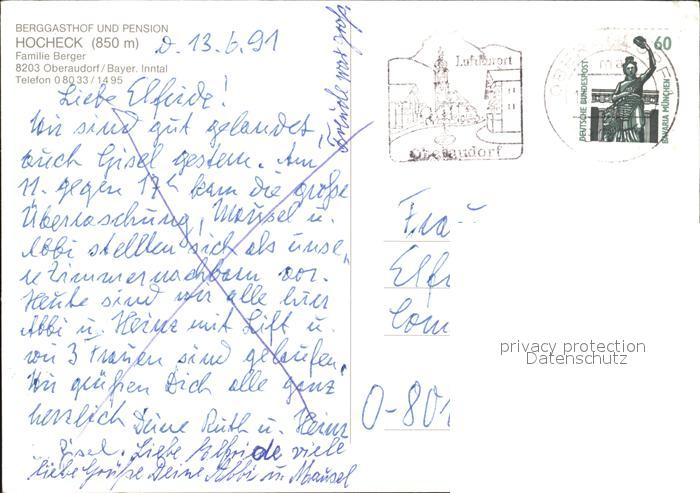 BERGGASTHOF UND PENSION
HOCHECK (850 m)
Familie Berger
8203 Oberaudorf/Bayer. Inntal
Telefon 0 80 33 / 14 95
D. 13.6.91
Liebe Elfride!
Wir sind gut gelandet,
auch Gisel gestern. Am
11. gegen 17h kam die große
Überraschung, Mausel u.
Abbi stellten sich als unse-
re Zimmernachbarn vor.
Heute sind wir alle hier
Abbi u. Heinz mit Lift u.
wir 3 Frauen sind gelaufen.
Wir grüßen Dich alle ganz
herzlich Deine Ruth u. Heinz
Gisel. Liebe Elfriede viele
liebe Grüße Deine Abbi u. Mausel
Freude war groß
Luftkurort
Oberaudorf
60
DEUTSCHE BUNDESPOST
BAVARIA MÜNCHEN
Frau
Elfr
O-801
privacy protection
Datenschutz